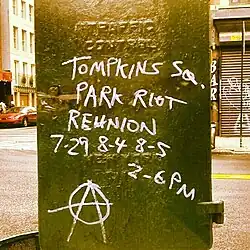 TRAFFIC
CONTROL
TOMPKINS SQ.
PARK RIOT
REUNION
7-29 8-4 8-5
2-6 PM
BAR